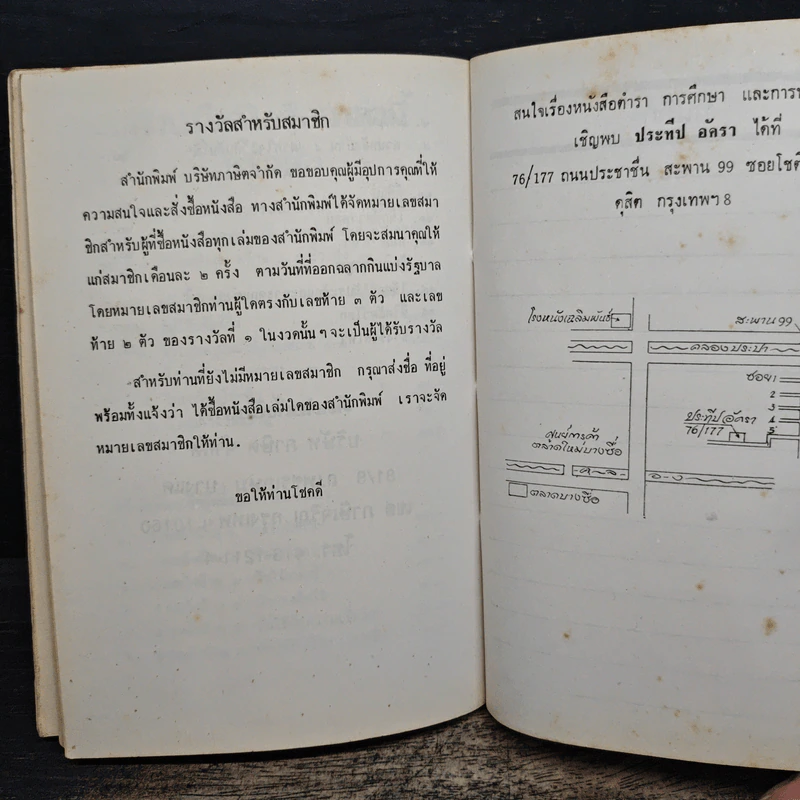 รางวัลสำหรับสมาชิก
สำนักพิมพ์ บริษัทภาษิตจำกัด ขอขอบคุณผู้มีอุปการคุณที่ให้
ความสนใจและสั่งซื้อหนังสือ ทางสำนักพิมพ์ได้จัดหมายเลขสมา
ชิกสำหรับผู้ที่ซื้อหนังสือทุกเล่มของสำนักพิมพ์ โดยจะสมนาคุณให้
แก่สมาชิกเดือนละ ๒ ครั้ง ตามวันที่ที่ออกฉลากกินแบ่งรัฐบาล
โดยหมายเลขสมาชิกท่านผู้ใดตรงกับเลขท้าย ๓ ตัว และเลข
ท้าย ๒ ตัว ของรางวัลที่ ๑ ในงวดนั้น ๆ จะเป็นผู้ได้รับรางวัล
สำหรับท่านที่ยังไม่มีหมายเลขสมาชิก กรุณาส่งชื่อ ที่อยู่
พร้อมทั้งแจ้งว่า ได้ซื้อหนังสือเล่มใดของสำนักพิมพ์ เราจะจัด
หมายเลขสมาชิกให้ท่าน.
ขอให้ท่านโชคดี
สนใจเรื่องหนังสือตำรา การศึกษา และการ
เชิญพบ ประทีป อัครา ได้ที่
76/177 ถนนประชาชื่น สะพาน 99 ซอยโชค
ดุสิต กรุงเทพฯ 8
โรงหนังเฉลิมพันธ์
สะพาน 99
คลองประปา
ซอย 1
2
3
4
5
ประทีป อัครา
76/177
ศูนย์การค้า
ตลาดใหม่บางซื่อ
ค-ล-อ-ง
ตลาดบางซื่อ